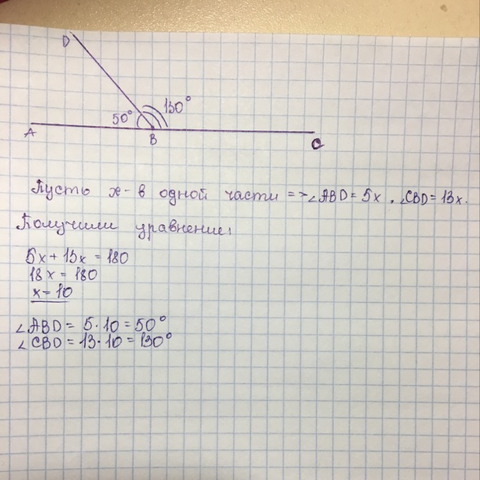 D
50° 130°
A B C
Пусть x - в одной части => ∠ABD = 5x, ∠CBD = 13x.
Получили уравнение:
5x + 13x = 180
18x = 180
x = 10
∠ABD = 5 · 10 = 50°
∠CBD = 13 · 10 = 130°